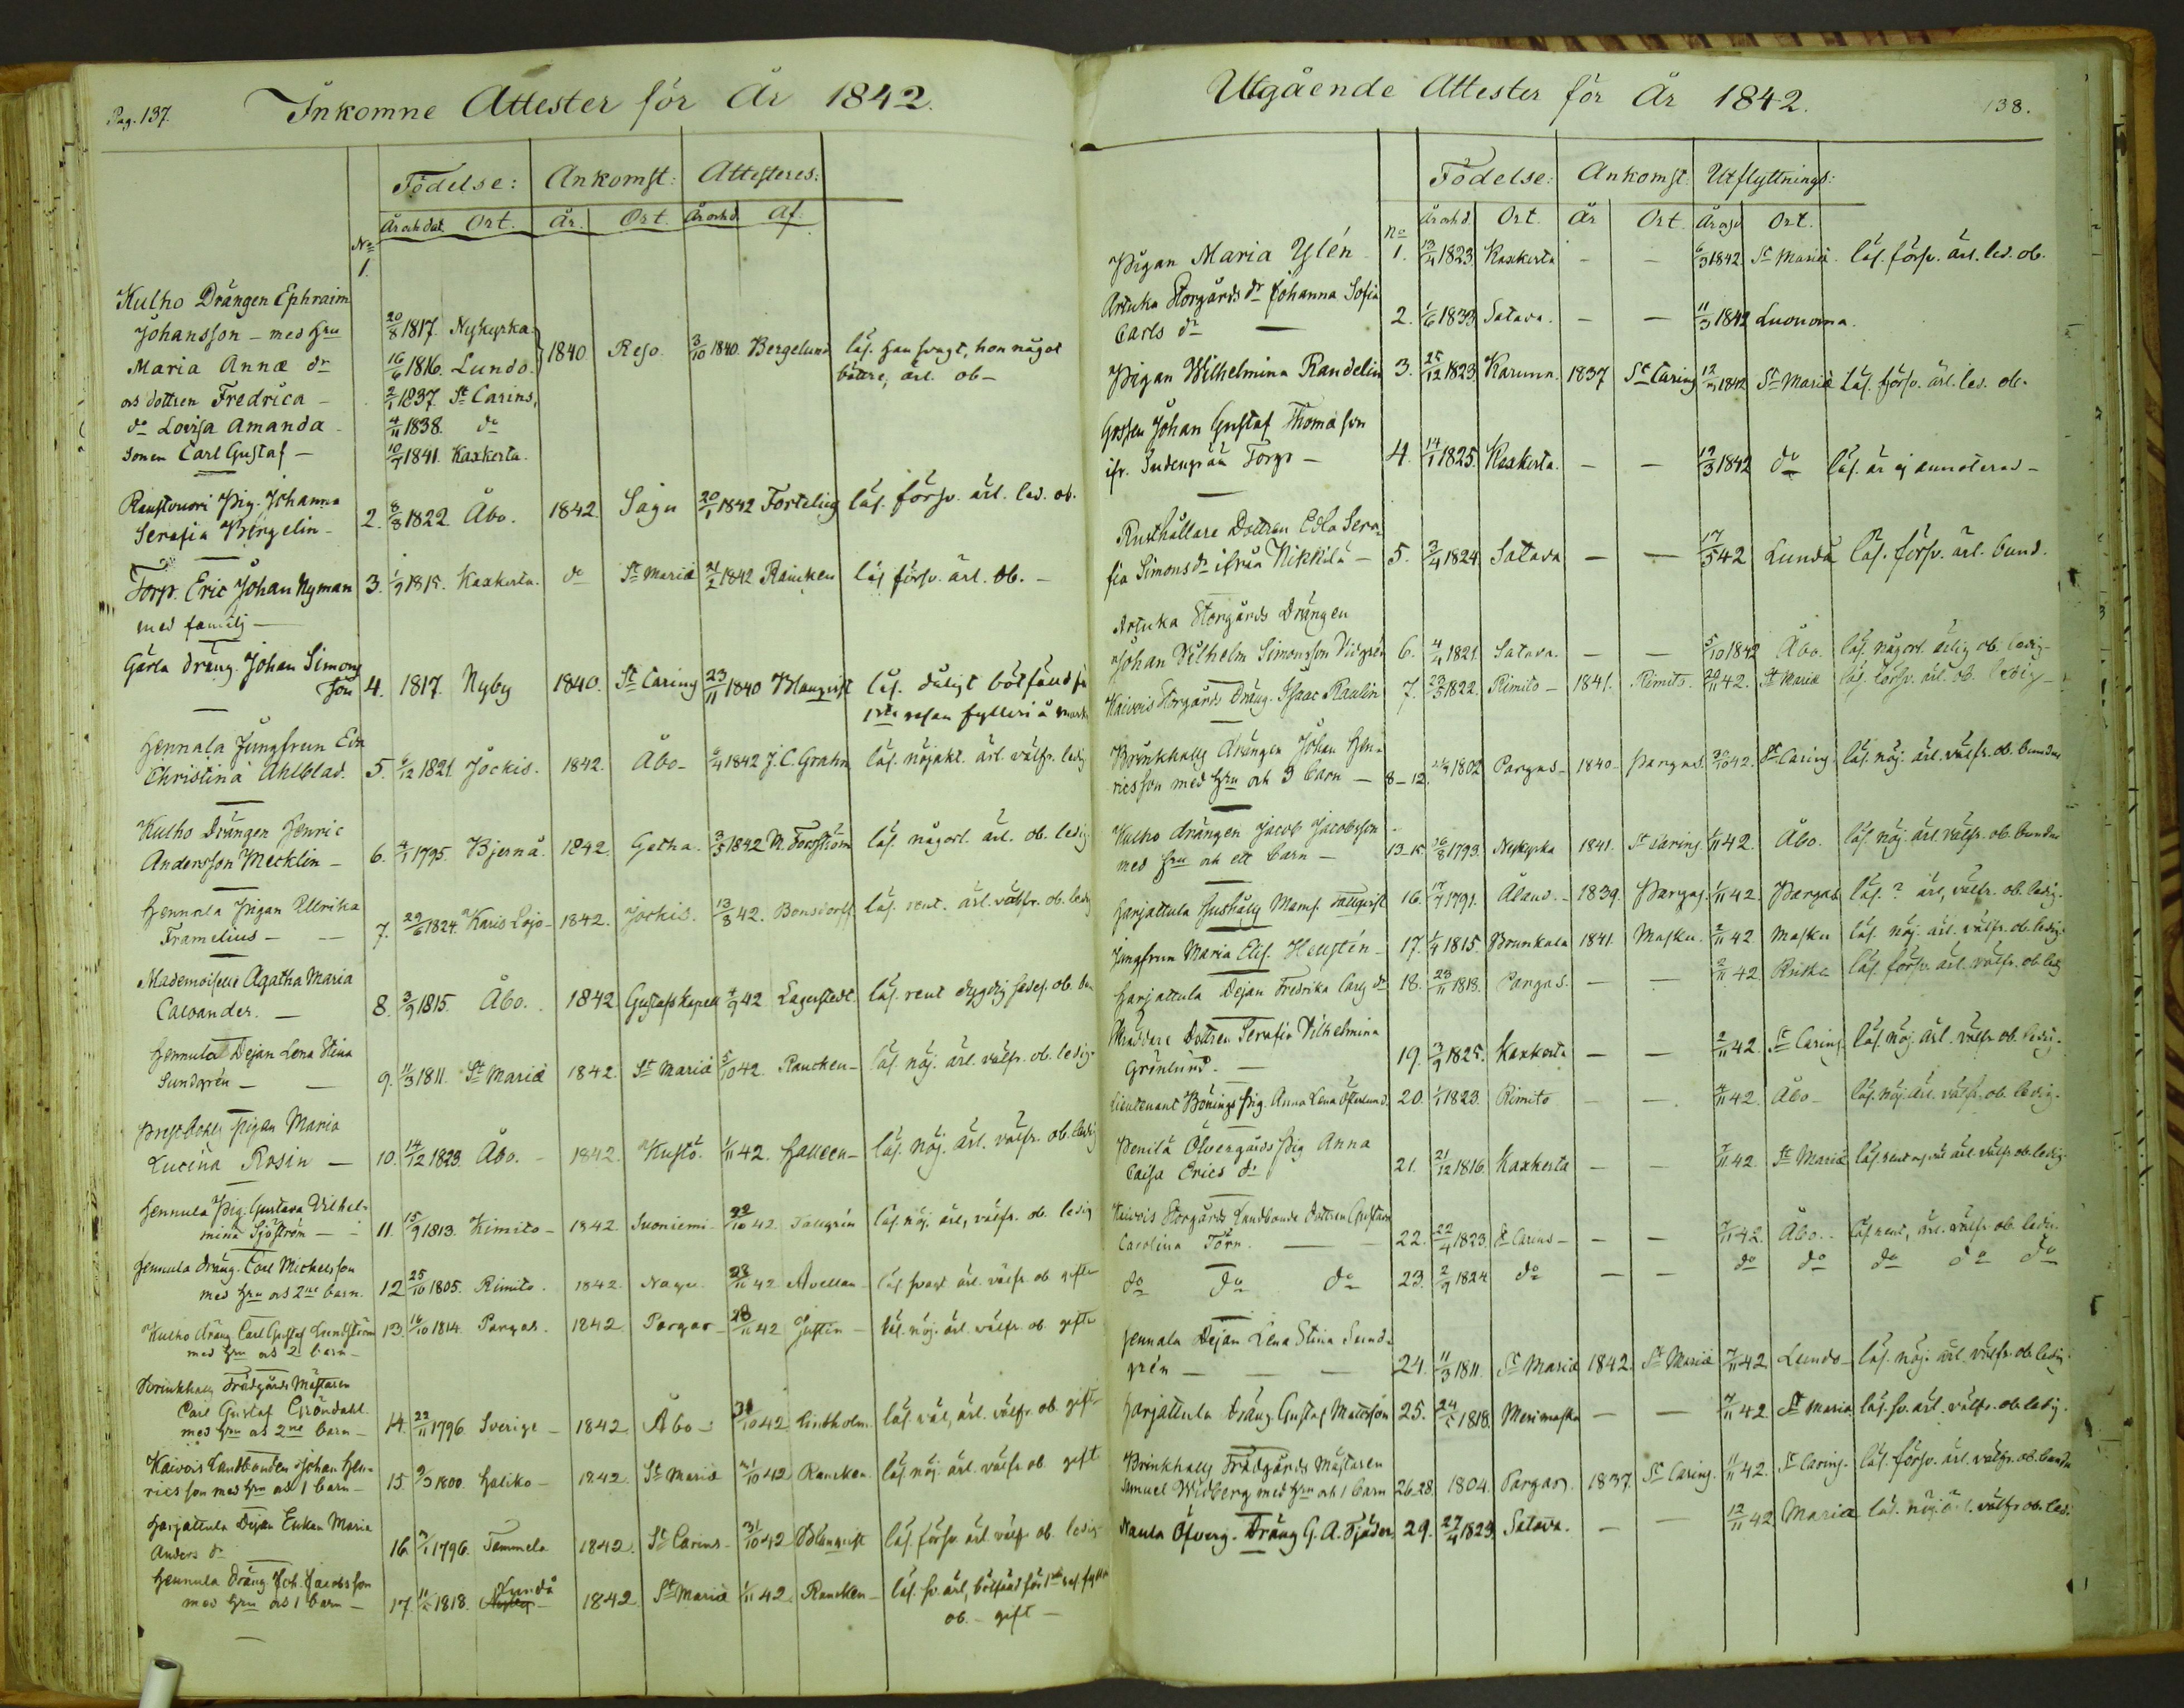 Pag. 137.
Inkomne Attester för År 1842.
Födelse: Ankomst: Attesteres:
No År och dat. Ort. År. Ort. År och d. Af.
1.
Kulho Drängen Ephraim
Johansson - med Hru 20/8 1817. Nykyrka
Maria Annæ dr 16/6 1816. Lundo. 1840 Reso. 3/10 1840. Bergelund läs. han svagt, hon något
bättre, ärl. ob-
och dottren Fredrica - 2/1 1837 St Carins,
do Lovisa Amanda - 4/11 1838. do
Sonen Carl Gustaf - 10/7 1841. Kaxkerta.
Pig. Johanna
Serafia Bergelin - 2. 8/8 1822 Åbo. 1842. Sagu 20/1 1842 Fortelius läs. försv. ärl. led. ob.
Torp. Eric Johan Nyman 3. 1/9 1815. Kaxkerta. do St Mariæ 21/2 1842 Rancken läs försv. ärl. ob. -
med familj -
Gärla Dräng. Johan Simons
son 4. 1817. Nyby 1840. St Carins 23/11 1840 Blanqvist läs. dåligt
1sta resan fylleri
Hennala Jungfrun Eva
Christina Ahlblad. 5. 9/12 1821. Jockis. 1842. Åbo - 9/4 1842 J. C. Grahn läs. nöjakt. ärl. välfr. ledig
Kulho Drängen Henric
Andersson Mecklin - 6. 4/1 1795. Bjernå. 1842. Getha. 3/5 1842 M. Forsström läs. någorl. ärl. ob. ledig.
Hennala Pigan Ullrika
Framelius - 7. 29/6 1824. Karis Lojo - 1842. Jockis. 13/8 42. Bonsdorff läs. rent. ärl. välfr. ob. ledig
Mademoiselle Agatha Maria
Calvander. - 8. 3/9 1815. Åbo. 1842 Gustafs Kapell 4/9 42 Lagerstedt. läs. rent dygdig
Hennala Dejan Lena Stina
Sundgrén - 9. 11/3 1811. St Mariæ 1842. St Mariæ 5/10 42. Rancken - läs. nöj. ärl. välfr. ob. ledig.
Prestbohls Pigan Maria
Lucina Rosin - 10. 14/12 1823. Åbo. - 1842. Kustö. 1/11 42. Halleen - läs. nöj. ärl. välfr. ob. ledig
Hennula Pig. Gustava Vilhel-
mina Sjöström - 11. 15/9 1813. Kimito - 1842. Suoniemi 22/10 42. Tallgrén läs. nöj. ärl, välfr. ob. ledig
Hennula Dräng. Carl Michelsson
med Hru och 2ne barn. 12 25/10 1805. Rimito. 1842. Nagu. 23/11 42 Avellan - läs svagt ärl. välfr. ob gifte
Kulho dräng Carl Gustaf Lundström 13. 16/10 1814. Pargas. 1842. Pargas - 28/11 42 Justin - läs. nöj. ärl. välfr. ob. gifte
med Hru och 2 barn -
Brinkhalls Trädgårds Mästaren
Carl Gustaf Gröndahl.
med Hru och 2ne barn - 14. 22/11 1796. Sverige - 1842. Åbo - 31/10 42 Lindholm. läs. väl, ärl. välfr. ob gifte
Kaivois Landbonden Johan Hen-
ricsson med Hru och 1 barn - 15. 9/3 1800. Haliko - 1842. St Mariæ 31/10 42 Rancken. läs. nöj. ärl. välfr ob. gift
Harjattula Dejan Enkan Maria
Anders dr 16. 3/1 1796. Tammela 1842. St Carins - 31/10 42 Blanqvist läs. försv. ärl välfr ob. ledig
Hennula dräng Joh. Jacobsson Lundå
med Hru och 1 barn - 17. 1818. Nyby - 1842. St Mariæ 1/11 42. Rancken - läs. sv. ärl, bötfäld för 1sta res. fylleri
ob. - gift -
Utgående Attester för År 1842.
138.
Födelse: Ankomst: Utflyttnings:
No År och d. Ort. År Ort. År och d. Ort.
Pigan Maria Ylén 1. 13/4 1823 Kaxkerta - - 6/3 1842. St Mariæ. läs. försv. ärl. led. ob.
Artuka Storgårds dr Johanna Sofia
Carls dr - 2. 1/6 1833 Satava. - - 11/3 1842 Luonnonmaa.
Pigan Wilhelmina Randelin 3. 25/12 1823 Karuna. 1837 St Carins 12/3 1842 St Mariæ Läs. försv. ärl. led. ob.
Gossen Johan Gustaf Thomasson
ifr. Torp - 4. 14/1 1825. Kaxkerta. - - 19/3 1842 do läs. är ej annoterad -
Rusthållare Dottren Edla Sera-
fia Simons dr ifrån Nikkilä - 5. 3/4 1824 Satava - - 17/5 42 Lundå läs. försv. ärl. bund.
Artuka Storgårds Drängen
Johan Vilhelm Simonsson Vidgrén 6. 4/4 1821. Satava. - - 5/10 1842 Åbo. läs. någorl. ärlig ob. ledig -
Kaivois Storgårds Dräng. Isaac Raulin 7. 23/5 1822. Rimito - 1841. Rimito. 20/11 42. St Mariæ läs. försv. ärl. ob. ledig -
Brinkhalls drängen Johan Hen-
ricsson med Hru och 3 barn - 8-12. 1802 Pargas - 1840 - Pargas. 30/10 42. St Carins. läs. nöj. ärl. välfr. ob. bundne
Kulho drängen Jacob Jacobsson
med Hru och ett barn - 13-15. 16/8 1793. Nykyrka 1841. St Carins. 1/11 42. Åbo. läs. nöj. ärl. välfr. ob. bundne
Harjattula Hushålls Mams. Tallqvist 16. 17/7 1791. Åland. - 1839. Pargas. 1/11 42. Pargas. läs. ? ärl, välfr. ob. ledig.
Jungfrun Maria Elis. Hellstén - 17. 1/4 1815. Brunkala 1841. Masku. 2/11 42. Masku läs. nöj. ärl. välfr. ob. ledig.
Harjattula Dejan Fredrika Carls dr 18. 28/11 1818. Pargas. - - 2/11 42 Reso läs. försv. ärl. välfr. ob. ledig
Skräddare Dottren Serafia Vilhelmina
Grönlund. - 19. 3/9 1825. Kaxkerta - - 2/11 42. St Carins läs. nöj. ärl. välfr ob. ledig.
Lieutenant Bönings Pig. Anna Lena Österlund. 20. 1/1 1823. Rimito - - 4/11 42. Åbo - läs. nöj. ärl. välfr. ob. ledig.
Penilä Ölvergårds Pig Anna
Caisa Erics dr 21. 21/12 1816. Kaxkerta - - 7/11 42. St Mariæ läs. rent ärl välfr ob. ledig.
Kaivois Storgårds Landbonde Dottren Gustava
Carolina Törn. - 22. 22/4 1823. St Carins - - - 7/11 42. Åbo. - läs rent, ärl. välfr ob. ledig.
do do do 23. 2/9 1824 do - - do do do do do
Hennala Dejan Lena Stina Sund-
grén - 24. 11/3 1811. St Mariæ 1842. St Mariæ 7/11 42 Lundo - läs. nöj. ärl. välfr. ob. ledig.
Harjattula Dräng Gustaf Mattsson 25. 24/5 1818. Merimasku - - 7/11 42. St Mariæ. läs. sv. ärl. välfr. ob ledig.
Brinkhalls Trädgårds Mästaren
Samuel Widberg med Hru och 1 barn 26-28. 1804. Pargas. 1837. St Carins. 11/11 42. St Carins. läs. försv. ärl. välfr. ob. bundn
Naula Öfverg. Dräng G. A. Fjäder 29. 27/4 1823. Satava. - - 12/11 42 Maria läs. nöj. ärl. välfr ob. ledi.